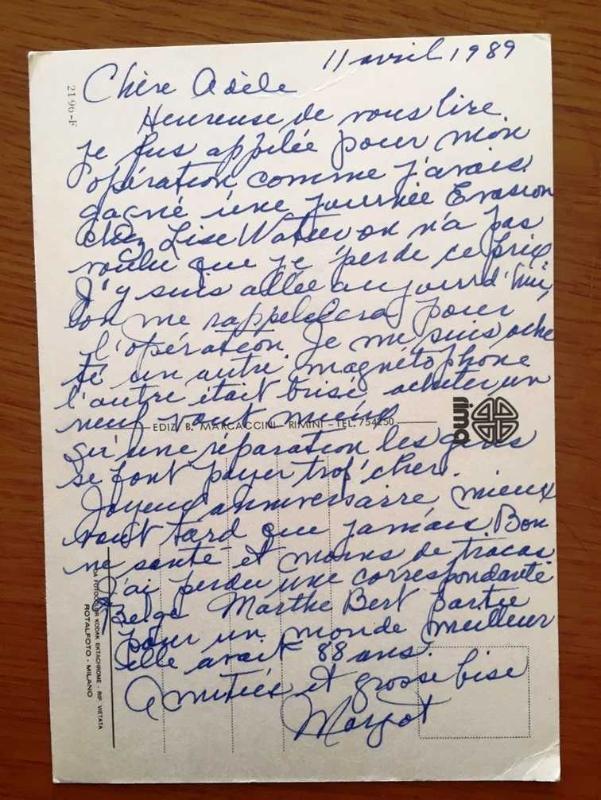 11 avril 1989
Chère Adèle
2196-F
Heureuse de vous lire
je fus appelée pour mon
opération comme j'avais
gagné une journée Evasion
chez Lise Watier on n'a pas
voulu que je perde ce prix
J'y suis allée aujourd'hui,
on me rappellera pour
l'opération. Je me suis ache
té un autre magnétophone
l'autre était brisé acheter un
neuf vaut mieux
rima
EDIZ. B. MARCACCINI - RIMINI - TEL. 754250
qu'une réparation les gens
se font payer trop cher.
Joyeux anniversaire mieux
vaut tard que jamais Bon
ne santé et moins de tracas
J'ai perdu une correspondante
Belge Marthe Bert partie
pour un monde meilleur
elle avait 88 ans.
Amitiés et grosse bise
Margot
KODAK EKTACHROME - RIP. VIETATA
ROTALFOTO - MILANO